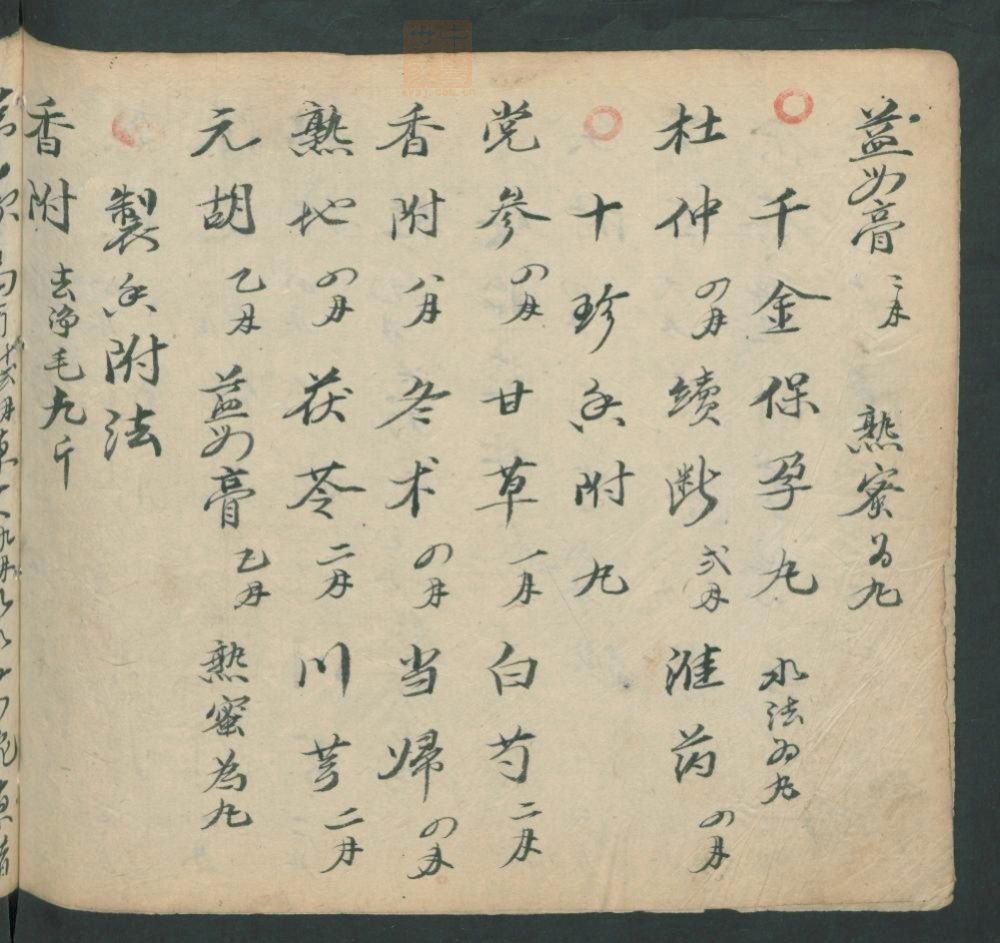 益母膏 二両 熟蜜为丸
千金保孕丸 水法为丸
杜仲 四両 續断 弍両 淮药 四両
十珍香附丸
党參 四両 甘草 一両 白芍 二両
香附 八両 冬术 四両 当歸 四両
熟地 四両 茯苓 二両 川芎 二両
元胡 乙両 益母膏 乙両 熟蜜為丸
製香附法
香附 去净毛 九斤